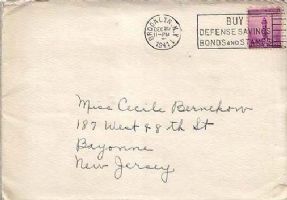 BROOKLYN, N.Y.
11-PM
1941
BUY
DEFENSE SAVINGS
BONDS AND STAMPS
Miss Cecile Bernehow
187 West 48th St
Bayonne
New Jersey